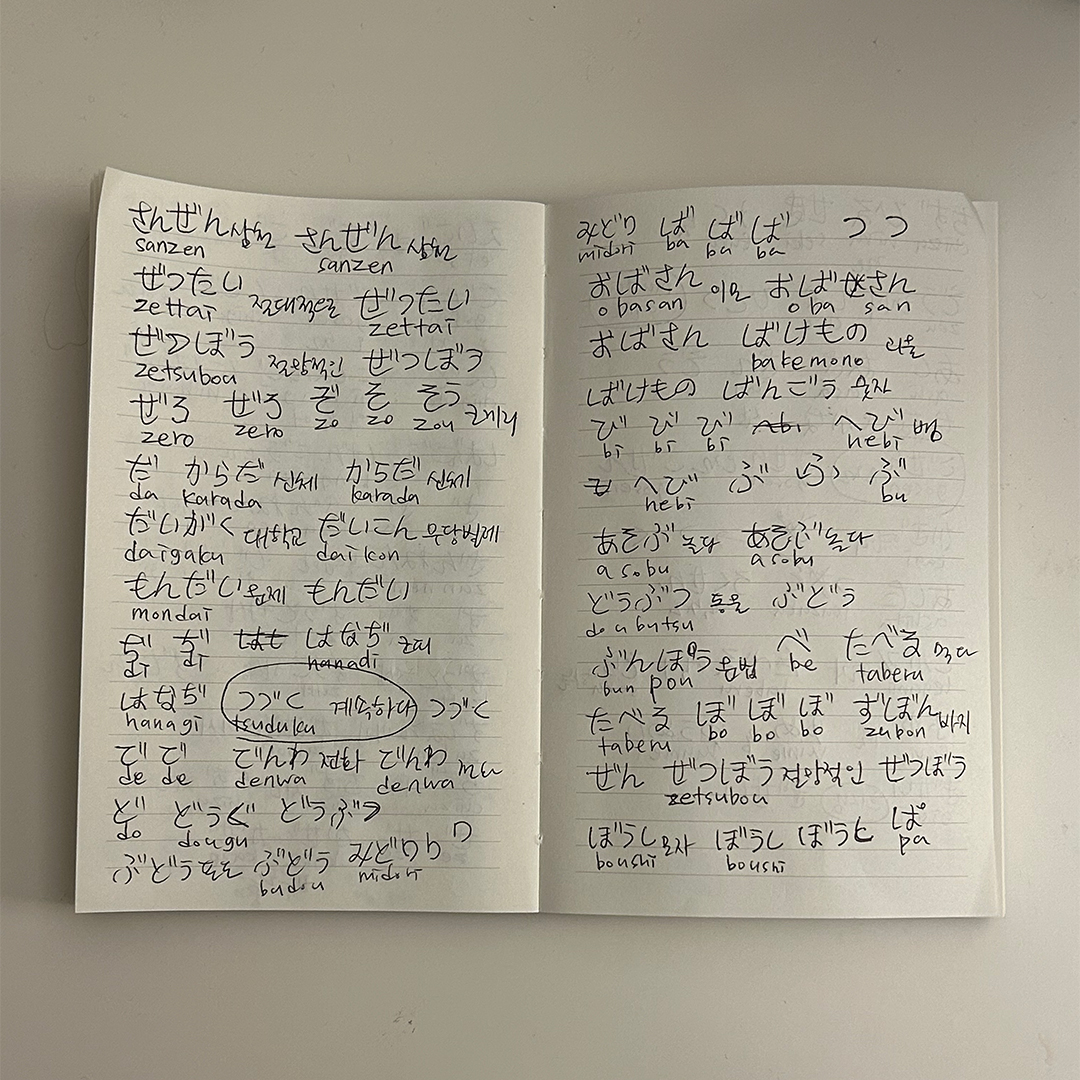 さんぜん 삼천 さんぜん 삼천
sanzen sanzen
ぜったい 절대적으로 ぜったい
zettai zettai
ぜつぼう 절망적인 ぜつぼう
zetsubou
ぜろ ぜろ ぞ そ ぞう 코끼리
zero zero zo zo zou
だ からだ 신체 からだ 신체
da karada karada
だいがく 대학교 だいこん
daigaku daikon
もんだい 문제 もんだい
mondai
ぢ ぢ はなぢ 코피
di di hanadi
はなぢ つづく 계속하다 つづく
hanagi tsuduku
で で でんわ 전화 でんわ
de de denwa denwa
ど どうぐ どうぶつ
do dougu
ぶどう 포도 ぶどう みどり り
budou midori
みどり ば ば ば つ つ
midori ba ba ba
おばさん 이모 おばさん
obasan oba san
おばさん ばけもの 괴물
bakemono
ばけもの ばんごう 숫자
び び び へび 뱀
bi bi bi hebi
へび ぶ ふ ぶ
hebi bu
あそぶ 놀다 あそぶ 놀다
asobu asobu
どうぶつ 동물 ぶどう
doubutsu
ぶんぽう 문법 べ たべる 먹다
bun pou be taberu
たべる ぼ ぼ ぼ ずぼん 바지
taberu bo bo bo zubon
ぜん ぜつぼう 절망적인 ぜつぼう
zetsubou
ぼうし 모자 ぼうし ぼうし ぱ
boushi boushi pa